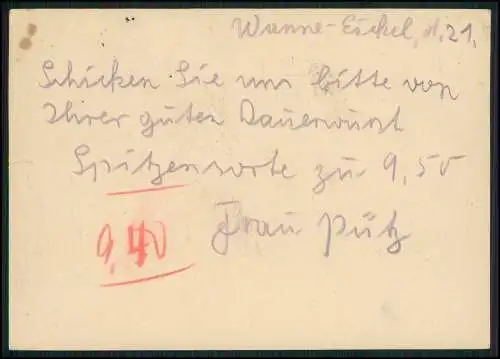 Wanne-Eickel, d. 21.
Schicken Sie uns bitte von
Ihrer guten Dauerwurst
Spitzensorte zu 9,50
9,40
Frau Pütz